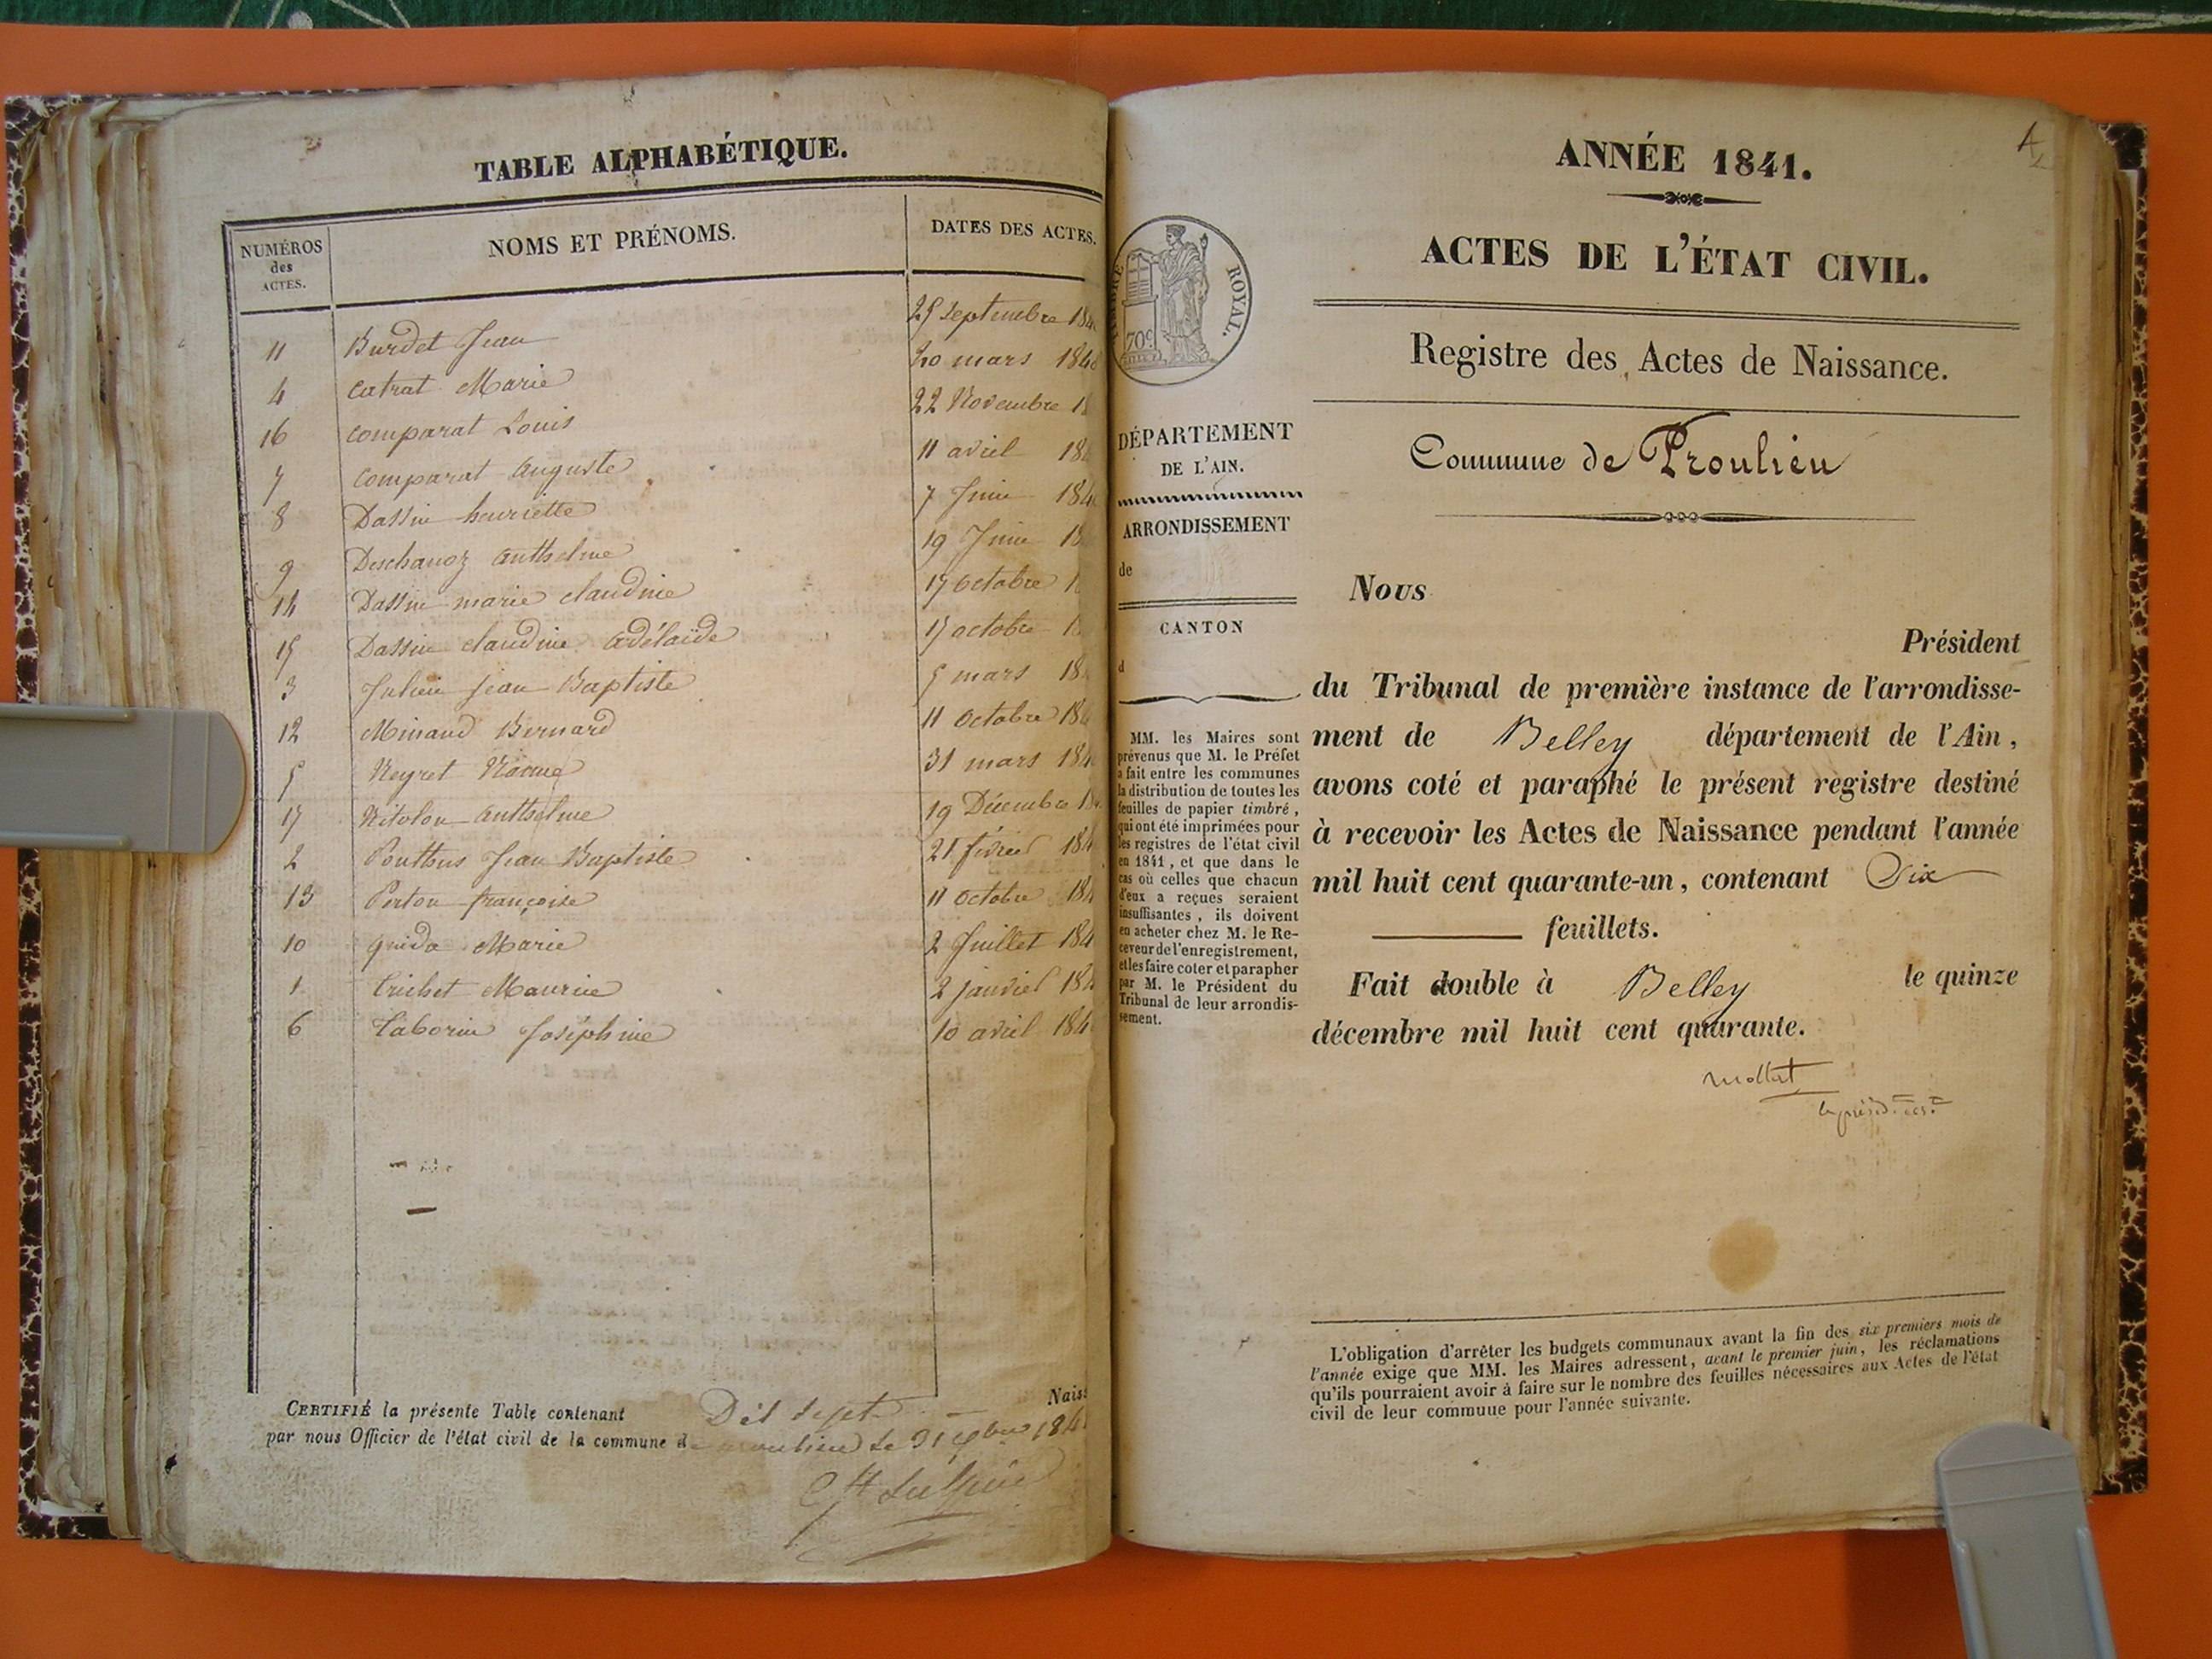 TABLE ALPHABÉTIQUE.
NUMÉROS
des
ACTES.
NOMS ET PRÉNOMS.
DATES DES ACTES.
11 Burdet Jean 25 Septembre 184
4 Catrat Marie 20 mars 1840
16 Comparat Louis 22 Novembre 1
7 Comparat Auguste 11 avril 184
8 Dassin henriette 7 Juin 184
9 Deschanoz Anthelme 19 Juin 18
14 Dassin marie claudine 17 octobre 1
15 Dassin claudine Adélaïde 17 octobre 1
3 Julien Jean Baptiste 5 mars 18
12 Minaud Bernard 11 Octobre 184
5 Neyret 31 mars 184
17 Anthelme 19 Décembre 18
2 Jean Baptiste 21 février 184
13 Perton françoise 11 Octobre 184
10 guida Marie 2 Juillet 184
1 Trichet Maurice 2 janvier 184
6 Taborin Joséphine 10 avril 184
CERTIFIÉ la présente Table contenant Dix sept Naiss
par nous Officier de l'état civil de la commune de le 31 184
ANNÉE 1841.
ACTES DE L'ÉTAT CIVIL.
Registre des Actes de Naissance.
Commune de Proulieu
TIMBRE ROYAL.
70c
DÉPARTEMENT
DE L'AIN.
ARRONDISSEMENT
de
CANTON
d
MM. les Maires sont
prévenus que M. le Préfet
a fait entre les communes
la distribution de toutes les
feuilles de papier timbré,
qui ont été imprimées pour
les registres de l'état civil
en 1841, et que dans le
cas où celles que chacun
d'eux a reçues seraient
insuffisantes, ils doivent
en acheter chez M. le Re-
ceveur de l'enregistrement,
et les faire coter et parapher
par M. le Président du
Tribunal de leur arrondis-
sement.
Nous
Président
du Tribunal de première instance de l'arrondisse-
ment de Belley département de l'Ain,
avons coté et paraphé le présent registre destiné
à recevoir les Actes de Naissance pendant l'année
mil huit cent quarante-un, contenant Six
feuillets.
Fait double à Belley le quinze
décembre mil huit cent quarante.
Mollet
L'obligation d'arrêter les budgets communaux avant la fin des six premiers mois de
l'année exige que MM. les Maires adressent, avant le premier juin, les réclamations
qu'ils pourraient avoir à faire sur le nombre des feuilles nécessaires aux Actes de l'état
civil de leur commune pour l'année suivante.